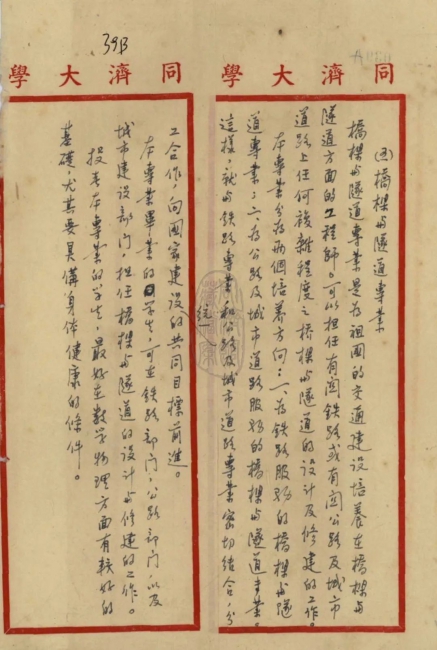 39B
同濟大學
四橋樑與隧道專業
橋樑與隧道專業是為祖國的交通建設培養在橋樑與
隧道方面的工程師。可以担任有関鉄路或有関公路及城市
道路上任何複雜程度之橋樑與隧道的設計及修建的工作。
本專業分為兩個培養方向:一、為鉄路服務的橋樑與隧
道專業;二、為公路及城市道路服務的橋樑與隧道專業。
這樣,就與鉄路專業和公路及城市道路專業密切結合,分
統一
同濟大學
工合作,向國家建設的共同目標前進。
本專業畢業的學生,可在鉄路部门,公路部门以及
城市建設部门,担任橋樑與隧道的設計與修建的工作。
投考本專業的学生,最好在数学物理方面有較好的
基礎,尤其要具備身体健康的條件。